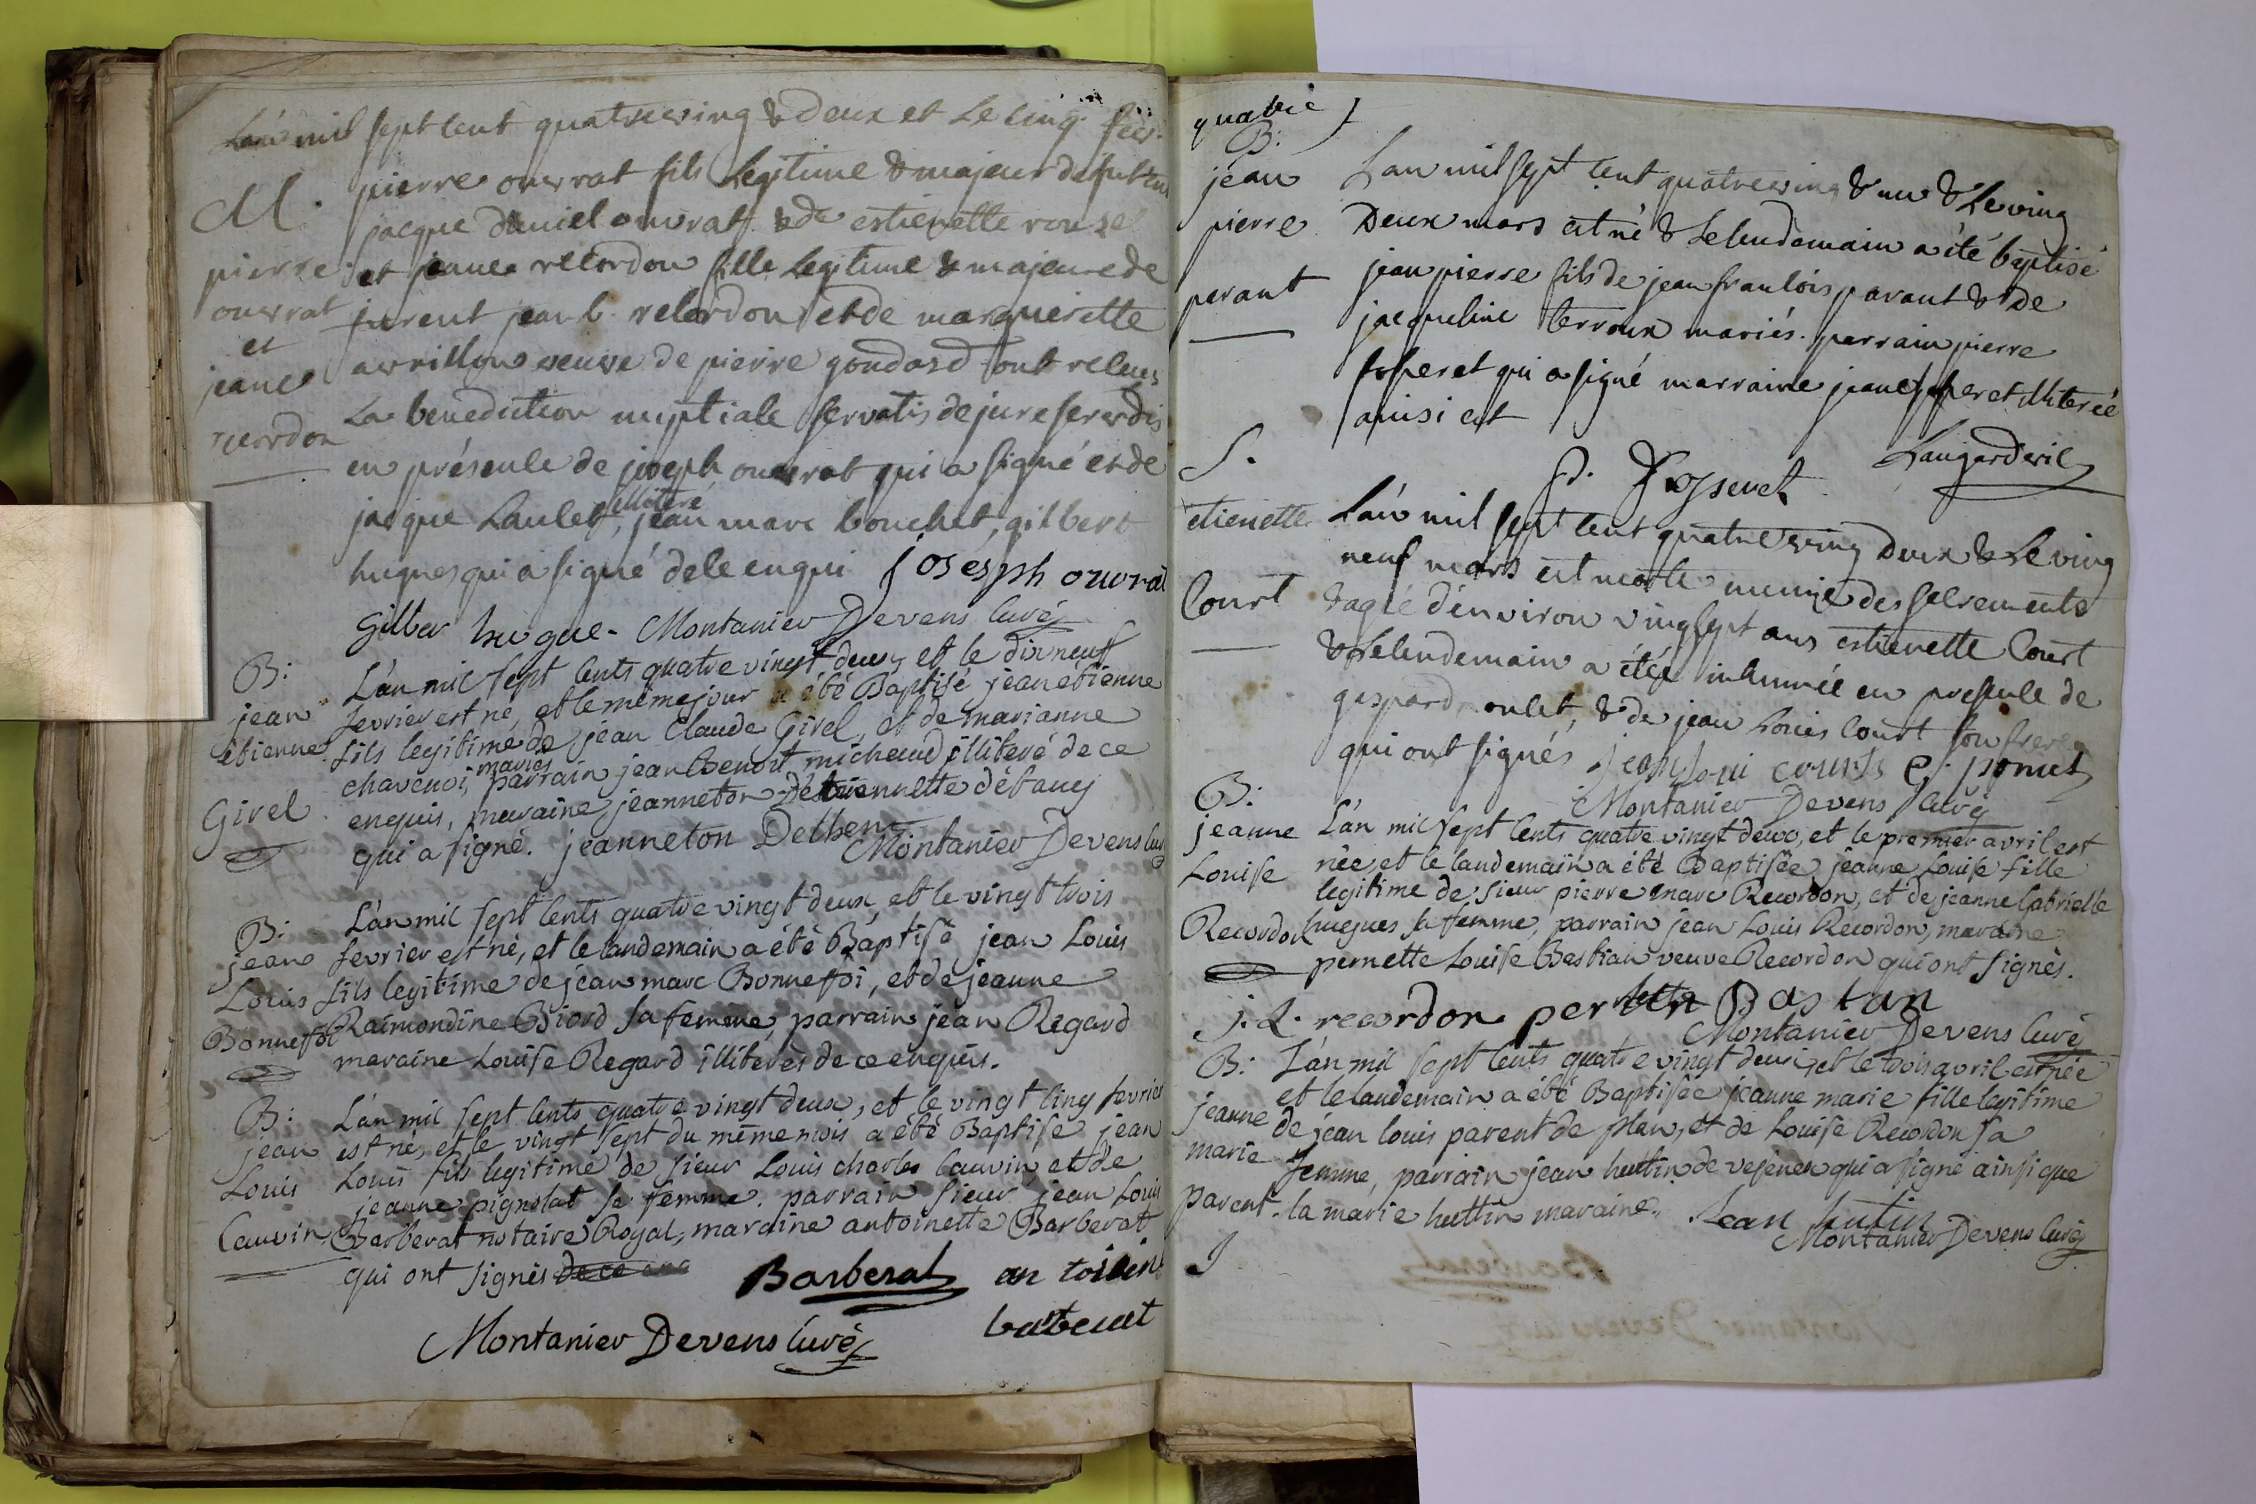 L'an mil sept cent quatreving & deux et le cinq fév.
pierre ouvrat fils legitime & majeur de
jacque daniel ouvrat & de estienette rouge
et jeane recordon fille legitime & majeure de
jean b. recordon et de marguerette
avrillon veuve de pierre goudard ont recues
la benediction nuptiale servatis de jure servandis
en présence de joseph ouvrat qui a signé et de
jacque Caulet, illiteré jean marc bouchet, gilbert
hugues qui a signé de ce enqui joesph ouvrat
gilber hugue - Montanier Devens Curé
M.
pierre
ouvrat
et
jeane
recordon
B:
jean
etienne
Girel
L'an mil sept cents quatre vingt deux et le dix neuf
fevrier est né, et le même jour a été Baptisé jean etienne
fils legitime de jean Claude Girel, et de marianne
chavenoi, mariés parrain jean Benoit michaud illiteré de ce
enquis, maraine, jeanneton
qui a signé. jeanneton Dethen
Montanier Devens Curé
B:
jean
Louis
Bonneffoi
L'an mil sept cents quatre vingt deux, et le vingt trois
fevrier est né, et le landemain a été Baptisé jean Louis
fils legitime de jean marc Bonneffoi, et de jeanne
Raimondine Biord sa femme, parrain jean Regard
maraine Louise Regard illiterés de ce enquis.
B:
jean
Louis
Cauvin
L'an mil sept cents quatre vingt deux, et le vingt cinq fevrier
est né, et le vingt sept du même mois a été Baptisé jean
Louis fils legitime de sieur Louis charles Cauvin, et de
jeanne pignolat sa femme. parrain sieur jean Louis
Barberat notaire Royal, maraine antoinette Barberat
qui ont signés de ce enq
Barberat an toisin
barberat
Montanier Devens Curé
quatre
B:
jean
pierre
parant
L'an mil sept cent quatreving & un & le ving
Deux mars est né & le lendemain a été baptisé
jean pierre fils de jean francois parant & de
jacqueline terroux mariés. parrain pierre
fosseret qui a signé marraine jeane fosseret illiterée
ainsi est
Laugarderil
P. Fosseret
S.
etienette
Court
L'an mil sept cent quatreving Deux & le ving
neuf mars est morte munie des sacrements
& agée d'environ vingsept ans estienette Court
& le lendemain a étée inhumée en presence de
gaspard poncet, & de jean louis Court son frere
qui ont signés jean loui courts g. ponset
Montanier Devens Curé
B:
jeanne
Louise
Recordon
L'an mil sept cents quatre vingt deux, et le premier avril est
née, et le landemain a été Baptisée jeanne Louise fille
legitime de sieur pierre marc Recordon, et de jeanne Gabrielle
hugues sa femme, parrain jean Louis Recordon, maraine
pernette Louise Bastian veuve Recordon qui ont signés.
j. L. recordon pernette Bastan
Montanier Devens Curé
B:
jeanne
marie
parent.
L'an mil sept cents quatre vingt deux, et le trois avril est née
et le landemain a été Baptisée jeanne marie fille legitime
de jean louis parent de plan, et de Louise Recordon sa
femme, parrain jean huttin de vesenex qui a signé ainsi que
la marie huttin maraine. Jean hutin
Montanier Devens Curé